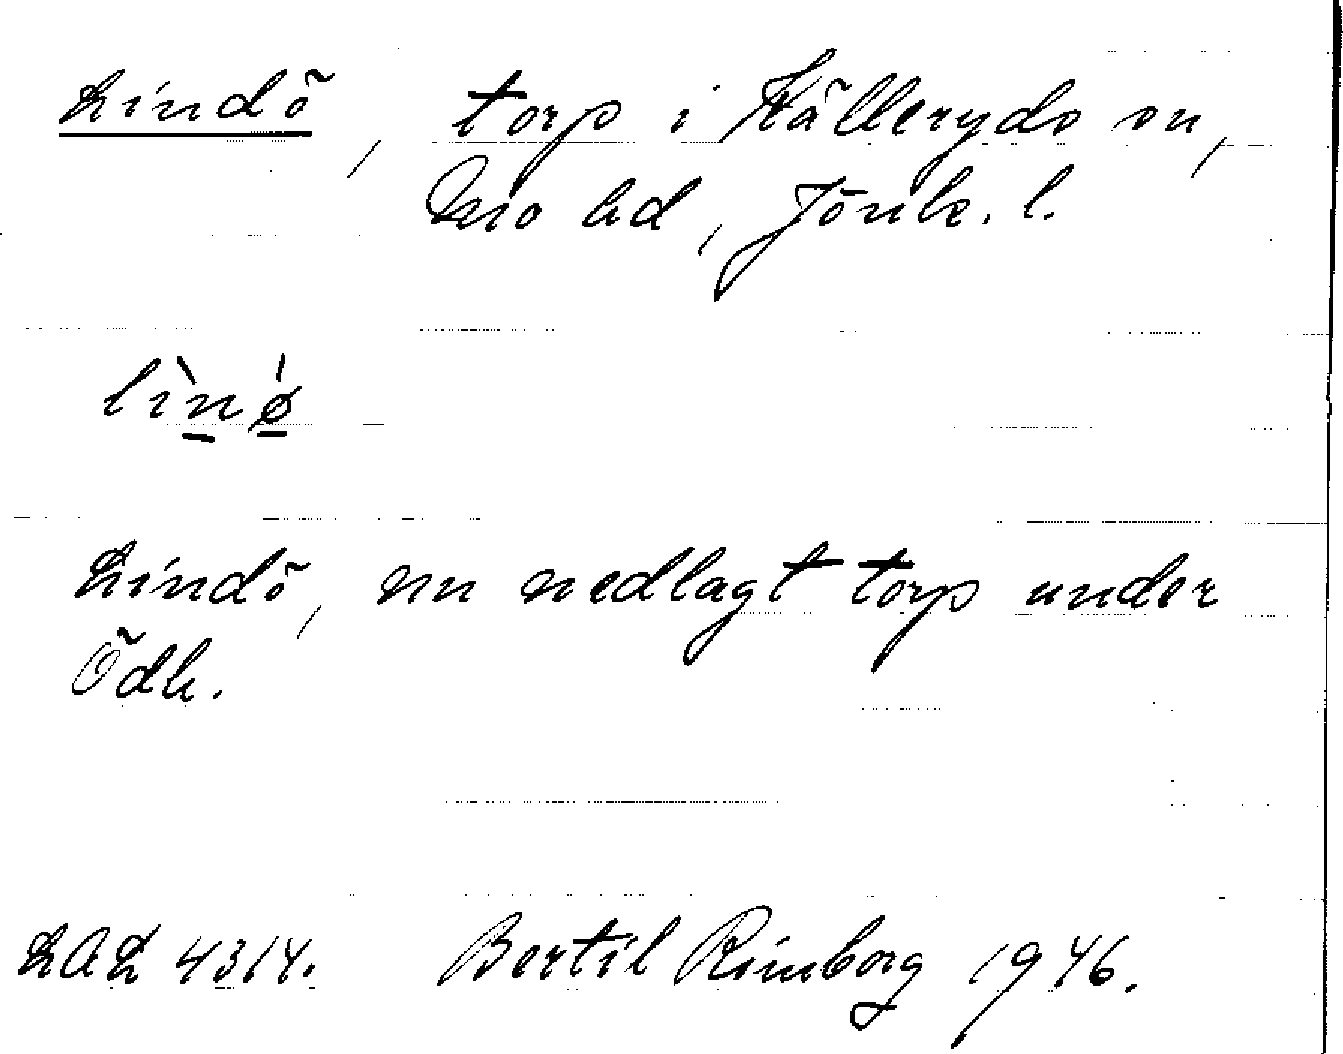 Lindö, torp i Källeryds sn,
Mo hd, Jönk. l.
lìnǿ
Lindö, nu nedlagt torp under
Ödh.
LAL 4314. Bertil Rimborg 1946.